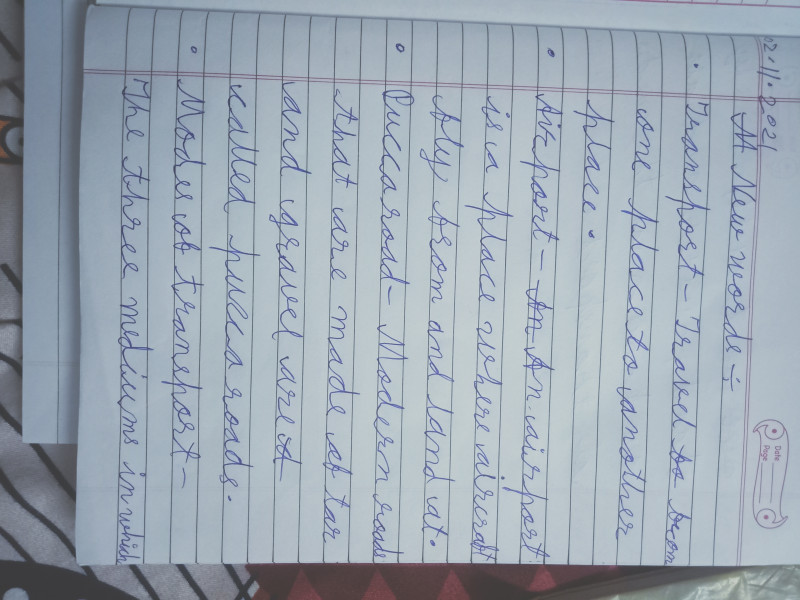 02.11.2021
Date
Page
A New words :-
Transport - Travel to from
one place to another
place.
Airport - An An airport
is a place where aircraft
fly from and land at.
Pucca road - Modern roads
that are made of tar
and gravel are
called pucca roads.
Modes of transport -
The three mediums in which